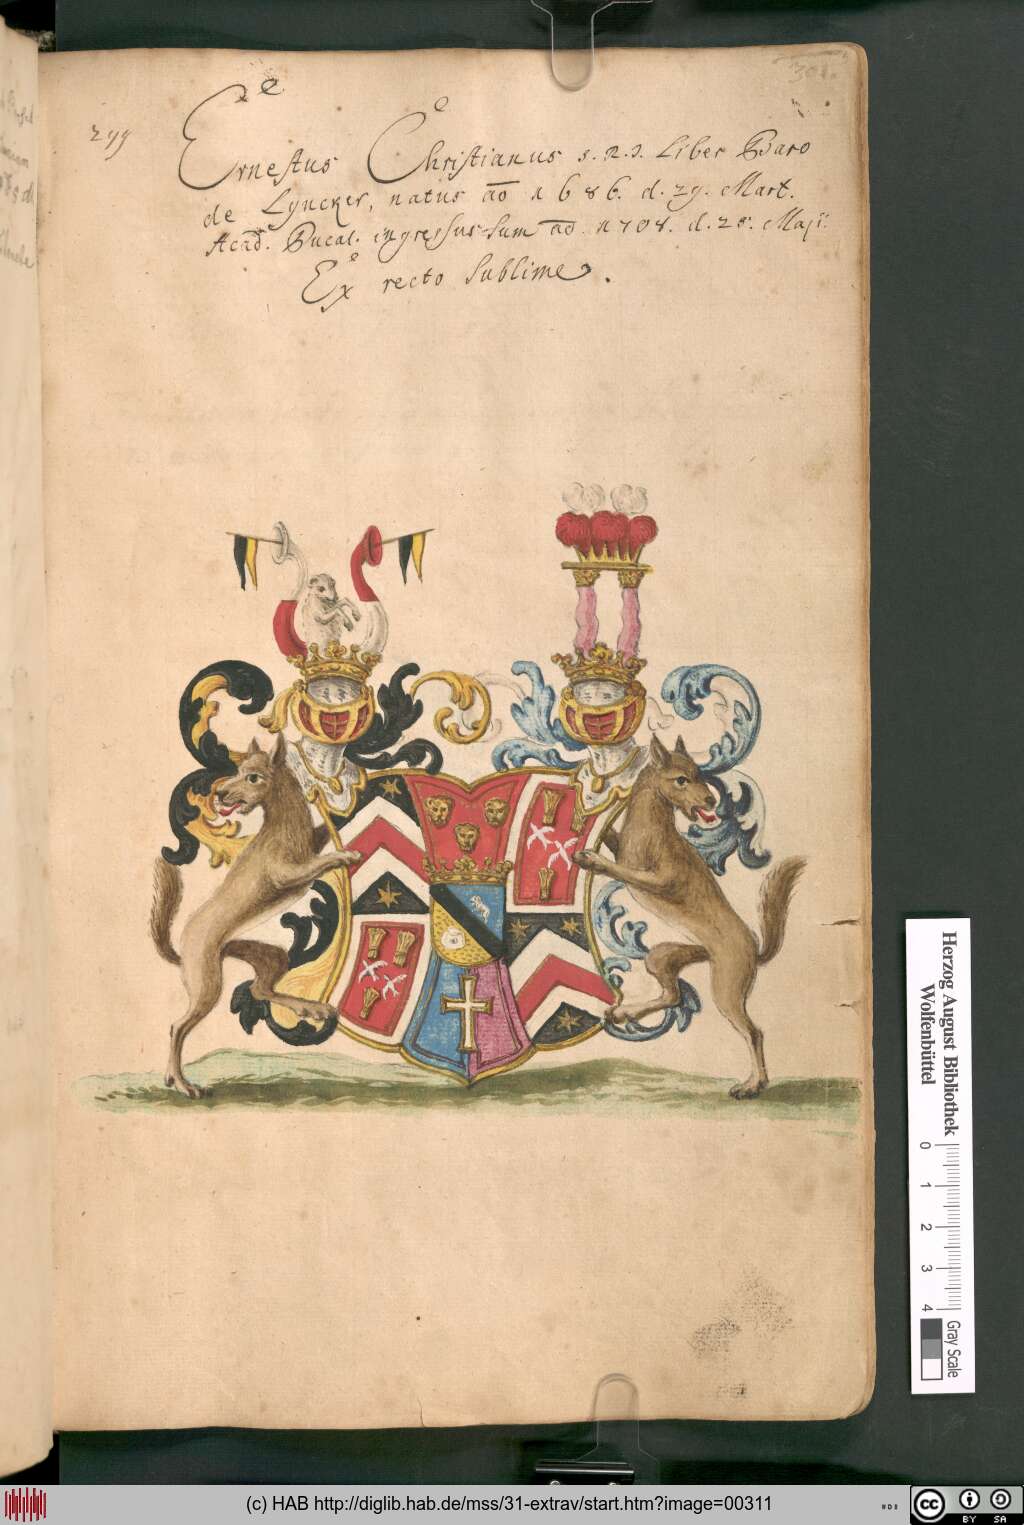 301.
299
Ernestus Christianus S. R. I. Liber Baro
de Lyncker, natus aõ 1686. d. 29. Mart.
Acad. Ducal. ingressus sum aõ 1708. d. 28. Maji.
Ex recto sublime.
Herzog August Bibliothek
Wolfenbüttel
0 1 2 3 4
Gray Scale
(c) HAB http://diglib.hab.de/mss/31-extrav/start.htm?image=00311
cc BY SA